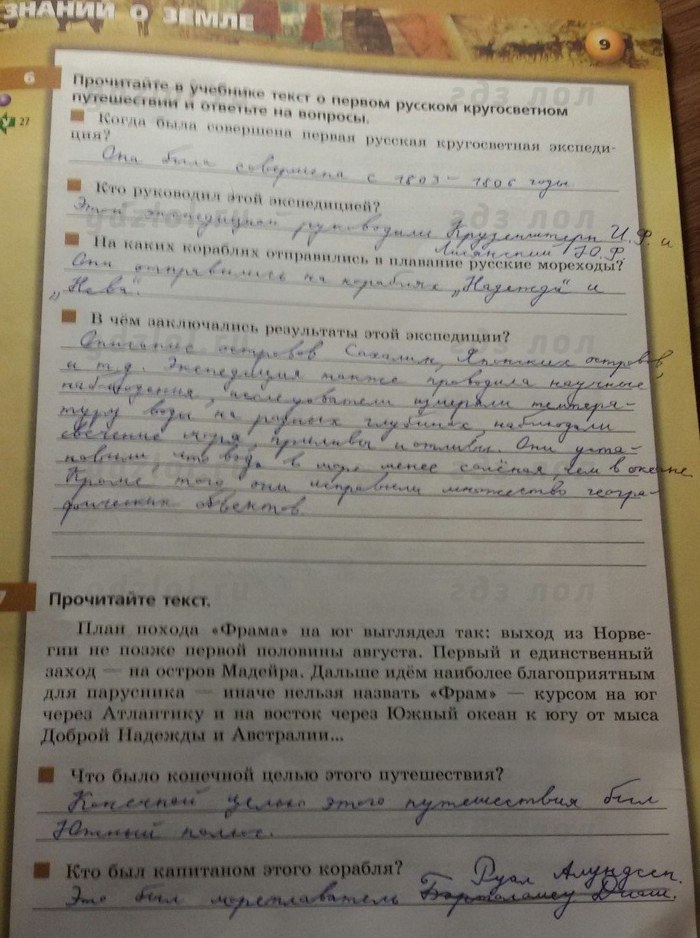 ЗНАНИЙ О ЗЕМЛЕ
9
6
Прочитайте в учебнике текст о первом русском кругосветном
путешествии и ответьте на вопросы.
27
Когда была совершена первая русская кругосветная экспеди-
ция?
Она была совершена с 1803 - 1806 годы
Кто руководил этой экспедицией?
Этой экспедицией руководили Крузенштерн И.Ф. и
Лисянский Ю.Ф.
На каких кораблях отправились в плавание русские мореходы?
Они отправились на кораблях „Надежда" и
„Нева".
В чём заключались результаты этой экспедиции?
Описание островов Сахалин, Японских островов,
и т.д. Экспедиция также проводила научные
наблюдения, исследователи измеряли темпера-
туру воды на разных глубинах, наблюдали
свечение моря, приливы и отливы. Они уста-
новили, что вода в море менее солёная, чем в океане
Кроме того они исправили множество геогра-
фических обьектов
gdzlol.ru
гдз лол
7
Прочитайте текст.
План похода «Фрама» на юг выглядел так: выход из Норве-
гии не позже первой половины августа. Первый и единственный
заход — на остров Мадейра. Дальше идём наиболее благоприятным
для парусника — иначе нельзя назвать «Фрам» — курсом на юг
через Атлантику и на восток через Южный океан к югу от мыса
Доброй Надежды и Австралии...
Что было конечной целью этого путешествия?
Конечной целью этого путешествия был
Южный полюс.
Кто был капитаном этого корабля?
Руал Амундсен.
Это был мореплаватель Бартоломеу Диаш.